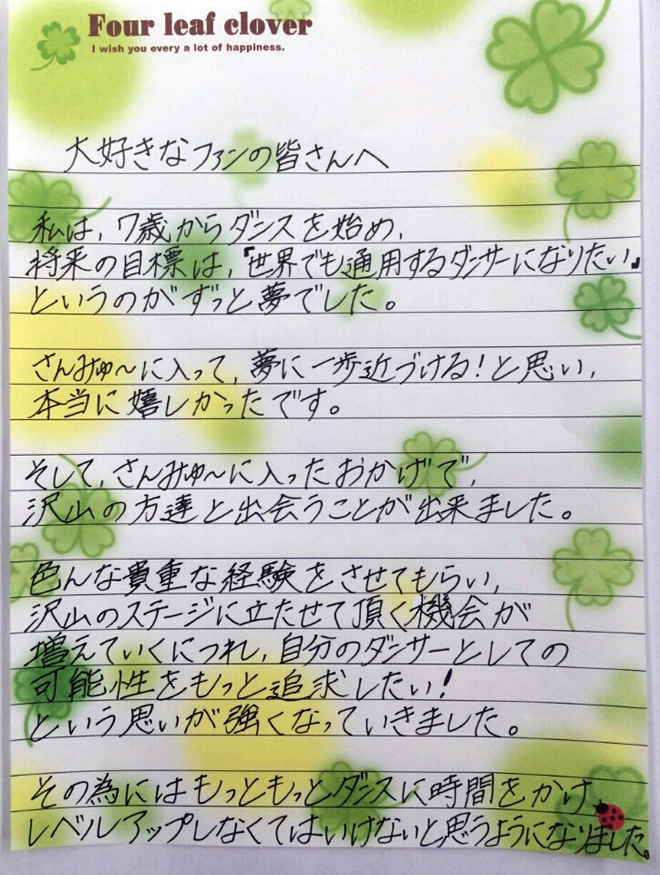 Four leaf clover
I wish you every a lot of happiness.
大好きなファンの皆さんへ
私は、7歳からダンスを始め、
将来の目標は、『世界でも通用するダンサーになりたい』
というのがずっと夢でした。
さんみゅ〜に入って、夢に一歩近づける!と思い、
本当に嬉しかったです。
そして、さんみゅ〜に入ったおかげで、
沢山の方達と出会うことが出来ました。
色んな貴重な経験をさせてもらい、
沢山のステージに立たせて頂く機会が
増えていくにつれ、自分のダンサーとしての
可能性をもっと追求したい!
という思いが強くなっていきました。
その為にはもっともっとダンスに時間をかけ
レベルアップしなくてはいけないと思うようになりました。